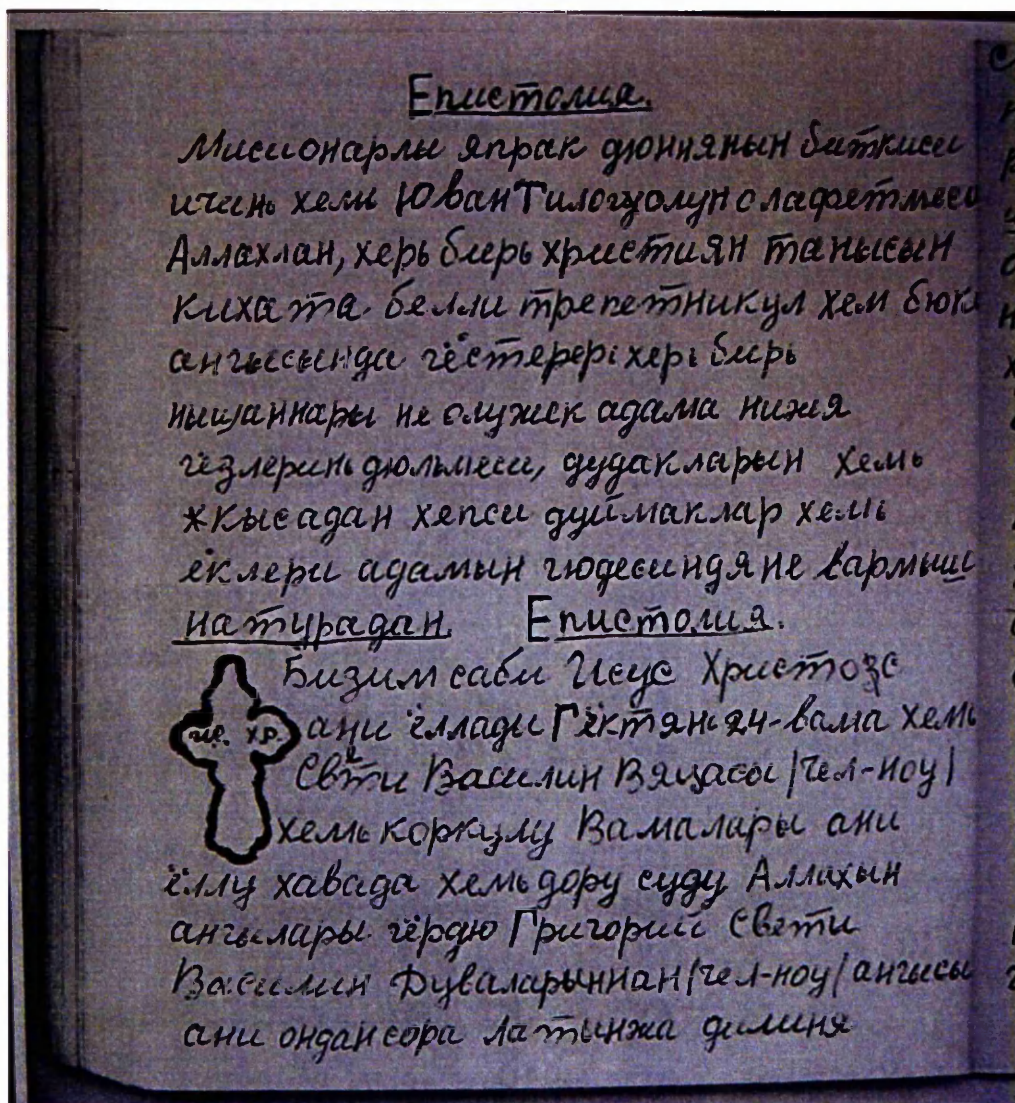 Епистолия.
Мисионарлы япрак дюннянын биткиси
ичинь хели Юван Тилогуолун олафетмеси
Аллахлан, херь бирь християн танысын
кихата белли трепетникул хем бюк
ангысында гёстерерь херь бирь
нышаннары не олужек адама нижя
гёзлеринь дюльмеси, дудакларын хемь
жкысадан хепси дуймаклар хемь
ёклери адамын гюдесиндя не вармыш
натурадан. Епистолия.
Бизим саби Исус Христозс
ис. хр. ани ёллади Гёктянь 24-вама хемь
Свети Василин Вяцасы /чел-ноу/
хемь коркулу Вамалары ани
ёллу хавада хемь дору суду Аллахын
ангылары гёрдю Григорий Свети
Василин Дуваларыннан /чел-ноу/ ангысы
ани ондан сора латынжа дилиня